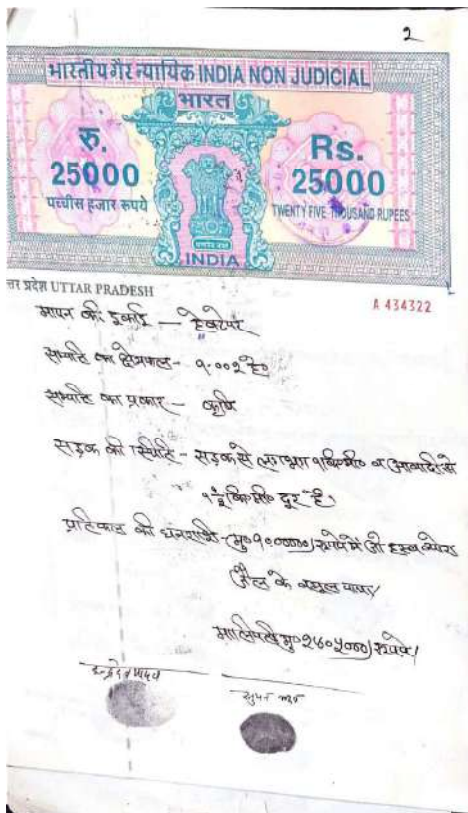 2
भारतीय गैर न्यायिक INDIA NON JUDICIAL
भारत
रु.
25000
पच्चीस हजार रूपये
Rs.
25000
TWENTY FIVE THOUSAND RUPEES
INDIA
त्तर प्रदेश UTTAR PRADESH
A 434322
मापन की इकाई — हेक्टेयर
सम्पत्ति का क्षेत्रफल - १.००२ हे०
सम्पत्ति का प्रकार — कृषि
सड़क की स्थिति - सड़क से लगभग १ कि०मी० व आबादी से
१½ कि०मी० दूर है।
प्रतिफल की धनराशी - मु० रूपये में जो हस्ब ब्योरा
जैल के वसूल पाया
मालियती मु० २४०५०००) रूपये।